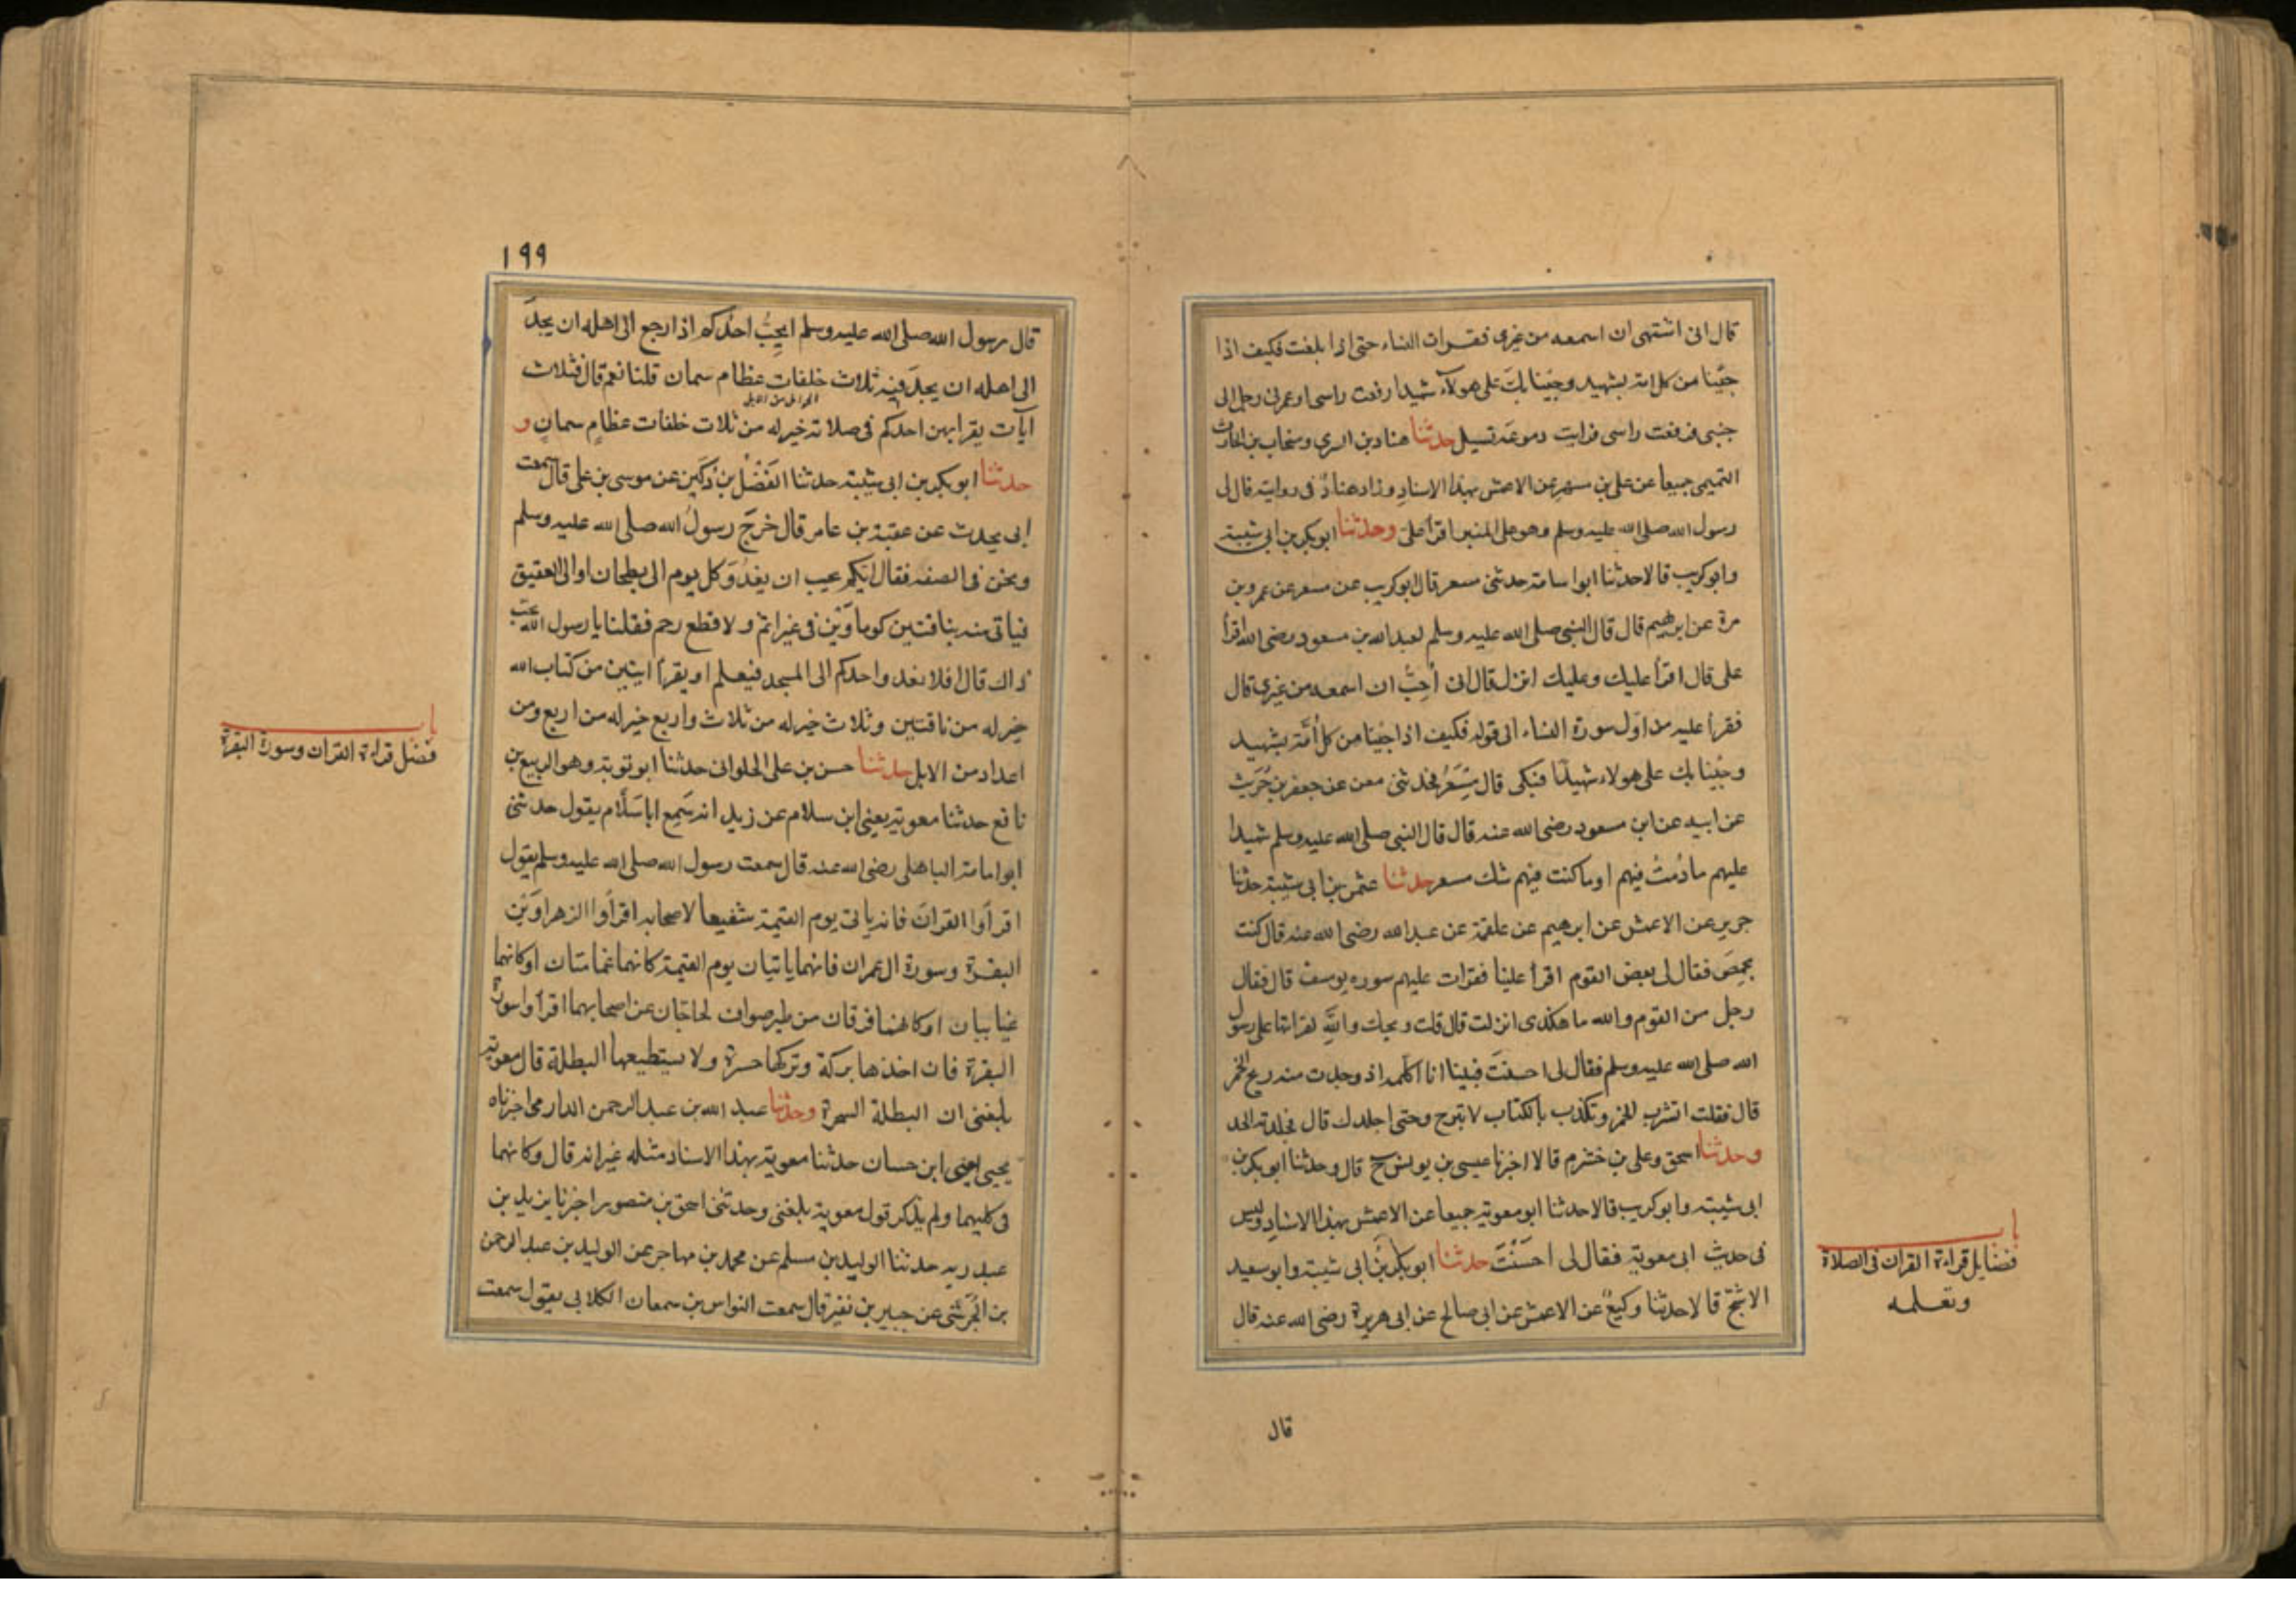 قال انى اشتهى ان اسمعه من غيرى فقرات النساء حتى اذا بلغت فكيف اذا
جئنا من كل امة بشهيد وجئنا بك على هولاء شهيدا رفعت راسى او غمزنى رجل الى
جنبى فرفعت راسى فرايت دموعه تسيل حدثنا هناد بن السري ومنجاب بن الحارث
التميمى جميعا عن على بن مسهر عن الاعمش بهذا الاسناد وزاد هناد فى روايته قال لى
رسول الله صلى الله عليه وسلم وهو على المنبر اقرا على وحدثنا ابو بكر بن ابى شيبة
وابو كريب قالا حدثنا ابو اسامة حدثنى مسعر قال ابو كريب عن مسعر عن عمرو بن
مرة عن ابرهيم قال قال النبى صلى الله عليه وسلم لعبد الله بن مسعود رضى الله اقرأ
على قال اقرأ عليك وعليك انزل قال انى أحب ان اسمعه من غيرى قال
فقرأ عليه من اول سورة النساء الى قوله فكيف اذا جئنا من كل أمة بشهيد
وجئنا بك على هولاء شهيدا فبكى قال مسعر فحدثنى معن عن جعفر بن حريث
عن ابيه عن ابن مسعود رضى الله عنه قال قال النبى صلى الله عليه وسلم شهيدا
عليهم ما دمت فيهم او ما كنت فيهم شك مسعر حدثنا عثمن بن ابى شيبة حدثنا
جرير عن الاعمش عن ابرهيم عن علقمة عن عبد الله رضى الله عنه قال كنت
بحمص فقال لى بعض القوم اقرأ علينا فقرات عليهم سوره يوسف قال فقال
رجل من القوم والله ما هكذى انزلت قال قلت ويحك والله لقراتها على رسول
الله صلى الله عليه وسلم فقال لى احسنت فبينا انا اكلمه اذ وجدت منه ريح الخمر
قال فقلت اتشرب الخمر وتكذب بالكتاب لا تبرح وحتى اجلدك قال فجلدته الحد
وحدثنا اسحق وعلى بن خشرم قالا اخبرنا عيسى بن يونس ح قال وحدثنا ابو بكر بن
ابى شيبة وابو كريب قالا حدثنا ابو معوية جميعا عن الاعمش بهذا الاسناد وليس
فى حديث ابى معوية فقال لى احسنت حدثنا ابو بكر بن ابى شيبة وابو سعيد
الاشج قالا حدثنا وكيع عن الاعمش عن ابى صالح عن ابى هريرة رضى الله عنه قال
باب
فضايل قراءة القران فى الصلاة
وتعلمه
قال
١٩٩
قال رسول الله صلى الله عليه وسلم ايحب احدكم اذا رجع الى اهله ان يجد
الى اهله ان يجد فيه ثلاث خلفات عظام سمان قلنا نعم قال فثلاث
الحوامل من الابل
آيات يقرا بهن احدكم فى صلاته خير له من ثلاث خلفات عظام سمان و
حدثنا ابو بكر بن ابى شيبة حدثنا الفضل بن دكين عن موسى بن على قال سمعت
ابى يحدث عن عقبة بن عامر قال خرج رسول الله صلى الله عليه وسلم
ونحن فى الصفه فقال ايكم يحب ان يغدو كل يوم الى بطحان او الى العقيق
فياتى منه بناقتين كوماوين فى غير اثم ولا قطع رحم فقلنا يا رسول الله نحب
ذاك قال افلا يغدوا احدكم الى المسجد فيعلم او يقرأ ايتين من كتاب الله
خير له من ناقتين وثلاث خير له من ثلاث واربع خير له من اربع ومن
اعداد من الابل حدثنا حسن بن على الحلوانى حدثنا ابو توبة وهو الربيع بن
نافع حدثنا معوية يعنى ابن سلام عن زيد انه سمع ابا سلام يقول حدثنى
ابو امامة الباهلى رضى الله عنه قال سمعت رسول الله صلى الله عليه وسلم يقول
اقرأوا القران فانه ياتى يوم القيمة شفيعا لاصحابه اقرأوا الزهراوين
البقرة وسورة ال عمران فانهما ياتيان يوم القيمة كانهما غمامتان او كانهما
غيايبان او كانهما فرقان من طير صواف تحاجان عن اصحابهما اقرأوا سورة
البقرة فان اخذها بركة وتركها حسرة ولا يستطيعها البطلة قال معوية
بلغنى ان البطلة السحرة وحدثنا عبد الله بن عبد الرحمن الدارمى اخبرناه
يحيى يعنى ابن حسان حدثنا معوية بهذا الاسناد مثله غير انه قال وكانهما
فى كليهما ولم يذكر قول معوية بلغنى وحدثنى اسحق بن منصور اخبرنا يزيد بن
عبد ربه حدثنا الوليد بن مسلم عن محمد بن مهاجر عن الوليد بن عبد الرحمن
بن الجرشى عن جبير بن نفير قال سمعت النواس بن سمعان الكلابى يقول سمعت
باب
فضل قراءة القران وسورة البقرة